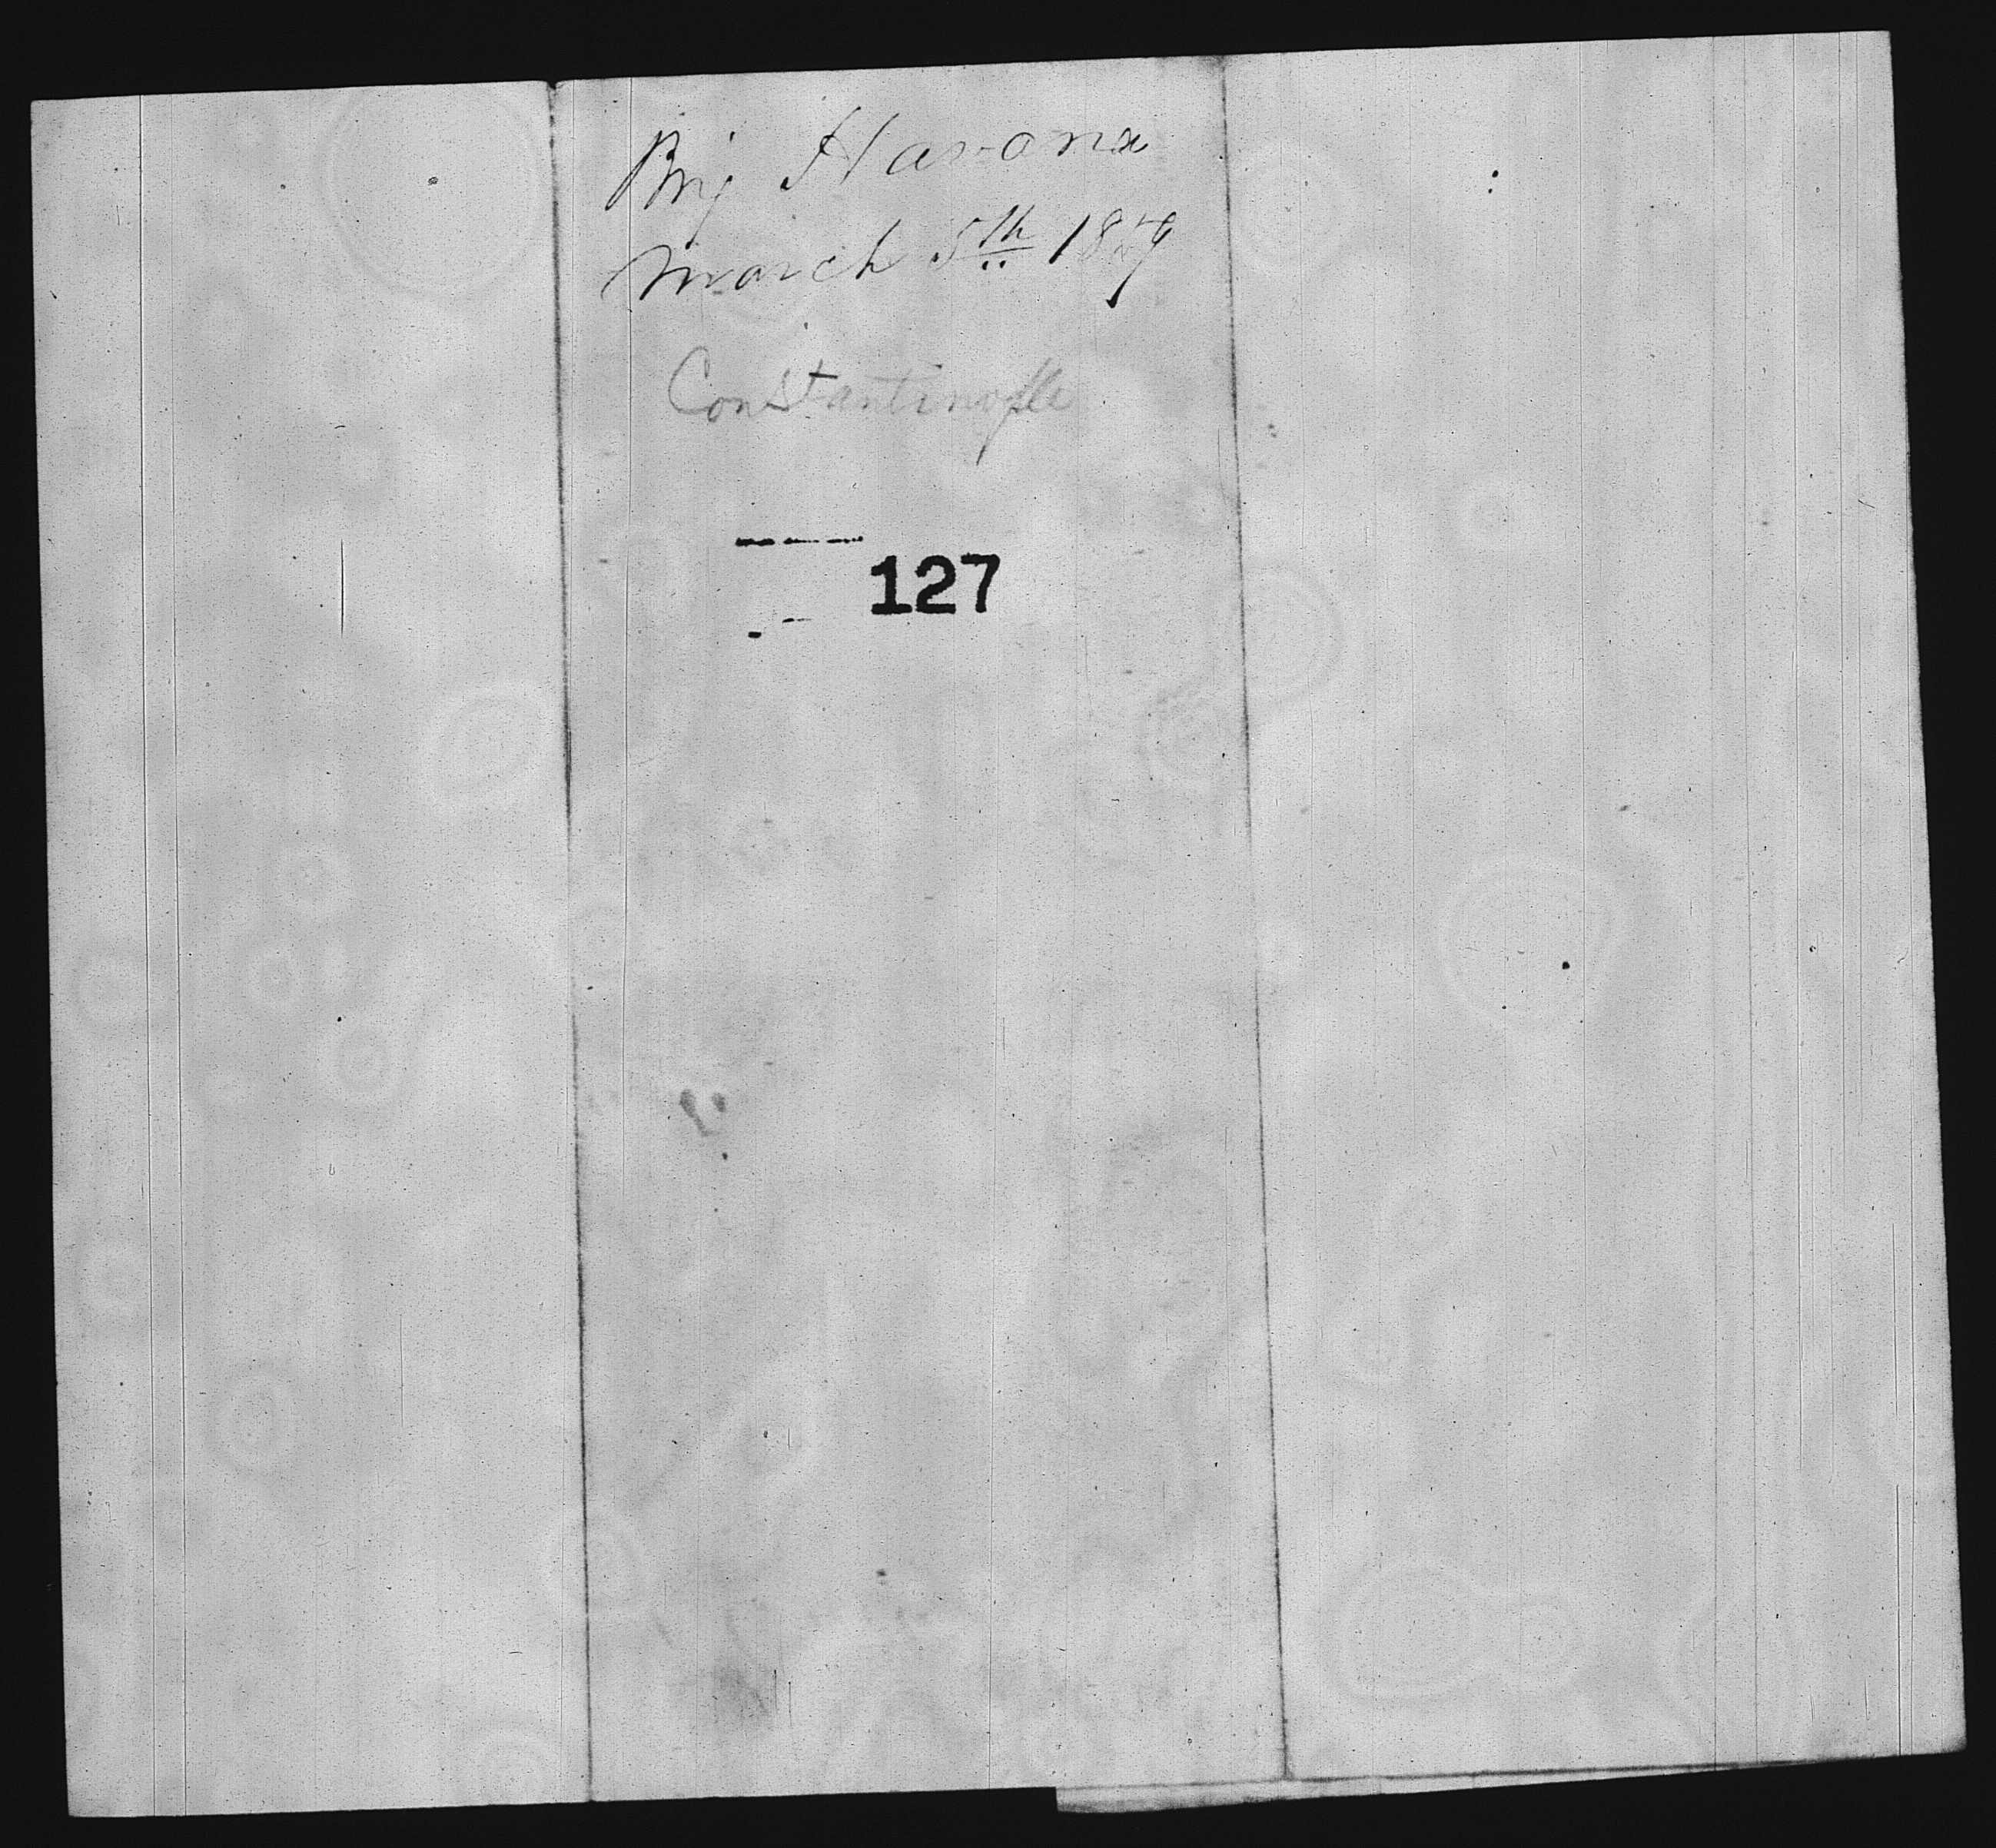 Brig Havana
March 5th 1859
Constantinople
127